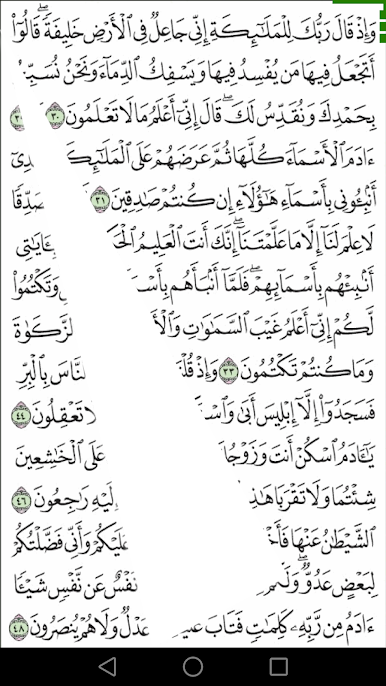 وَإِذْ قَالَ رَبُّكَ لِلْمَلَٰٓئِكَةِ إِنِّى جَاعِلٌ فِى ٱلْأَرْضِ خَلِيفَةً ۖ قَالُوٓا۟
أَتَجْعَلُ فِيهَا مَن يُفْسِدُ فِيهَا وَيَسْفِكُ ٱلدِّمَآءَ وَنَحْنُ نُسَبِّ
بِحَمْدِكَ وَنُقَدِّسُ لَكَ ۖ قَالَ إِنِّىٓ أَعْلَمُ مَا لَا تَعْلَمُونَ ٣٠
ءَادَمَ ٱلْأَسْمَآءَ كُلَّهَا ثُمَّ عَرَضَهُمْ عَلَى ٱلْمَلَٰٓئِكَ دِىٓ
أَنۢبِـُٔونِى بِأَسْمَآءِ هَٰٓؤُلَآءِ إِن كُنتُمْ صَٰدِقِينَ ٣١ صَدِّقًا
لَا عِلْمَ لَنَآ إِلَّا مَا عَلَّمْتَنَآ ۖ إِنَّكَ أَنتَ ٱلْعَلِيمُ ٱلْحَ بِـَٔايَٰتِى
أَنۢبِئْهُم بِأَسْمَآئِهِمْ ۖ فَلَمَّآ أَنۢبَأَهُم بِأَسْ وَتَكْتُمُوا۟
لَّكُمْ إِنِّىٓ أَعْلَمُ غَيْبَ ٱلسَّمَٰوَٰتِ وَٱلْأَ لزَّكَوٰةَ
وَمَا كُنتُمْ تَكْتُمُونَ ٣٣ وَإِذْ قُلْ لنَّاسَ بِٱلْبِرِّ
فَسَجَدُوٓا۟ إِلَّآ إِبْلِيسَ أَبَىٰ وَٱسْ لَا تَعْقِلُونَ ٤٤
يَٰٓـَٔادَمُ ٱسْكُنْ أَنتَ وَزَوْجُ عَلَى ٱلْخَٰشِعِينَ
شِئْتُمَا وَلَا تَقْرَبَا هَٰذِ لَيْهِ رَٰجِعُونَ ٤٦
ٱلشَّيْطَٰنُ عَنْهَا فَأَخْ عَلَيْكُمْ وَأَنِّى فَضَّلْتُكُمْ
لِبَعْضٍ عَدُوٌّ ۖ وَلَ نَفْسٌ عَن نَّفْسٍ شَيْـًٔا
ءَادَمُ مِن رَّبِّهِۦ كَلِمَٰتٍ فَتَابَ عَ عَدْلٌ وَلَا هُمْ يُنصَرُونَ ٤٨